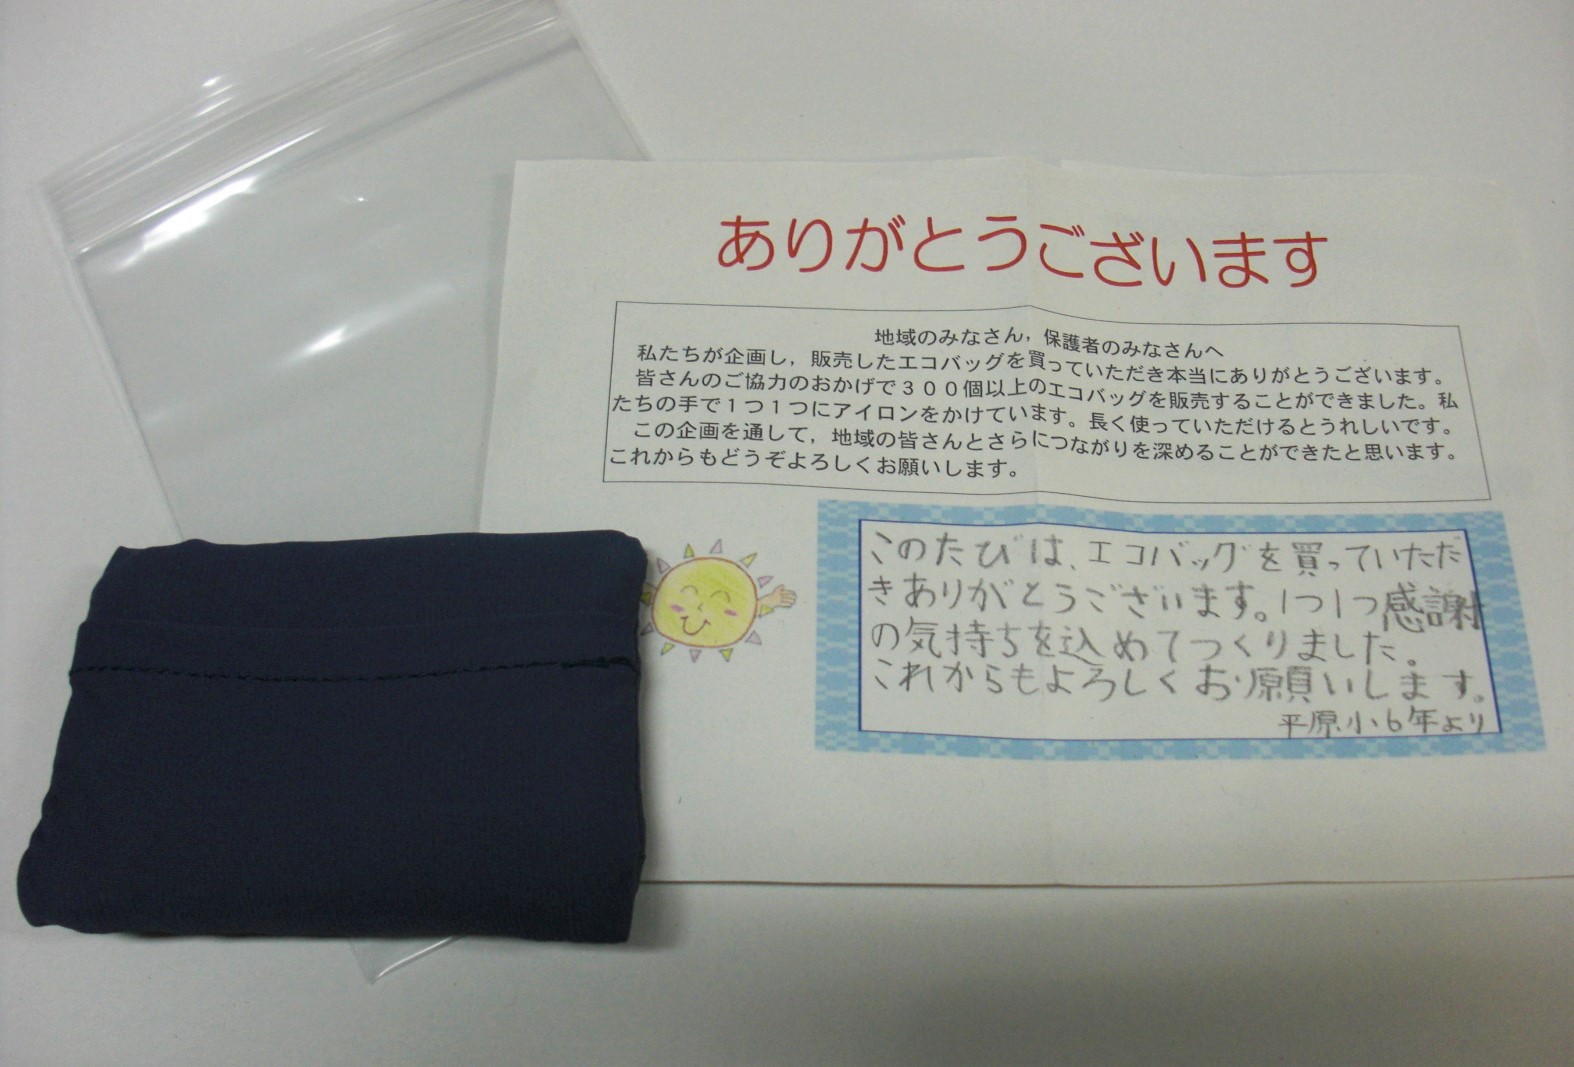 ありがとうございます
地域のみなさん，保護者のみなさんへ
私たちが企画し，販売したエコバッグを買っていただき本当にありがとうございます。
皆さんのご協力のおかげで３００個以上のエコバッグを販売することができました。私
たちの手で１つ１つにアイロンをかけています。長く使っていただけるとうれしいです。
この企画を通して，地域の皆さんとさらにつながりを深めることができたと思います。
これからもどうぞよろしくお願いします。
このたびは、エコバッグを買っていただ
きありがとうございます。1つ1つ感謝
の気持ちを込めてつくりました。
これからもよろしくお願いします。
平原小6年より